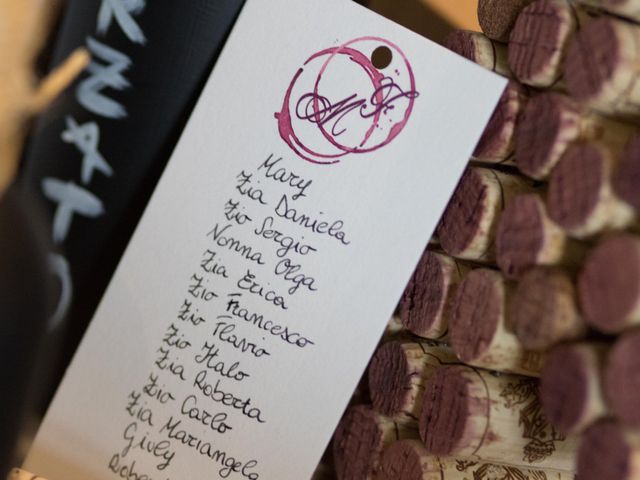 RZATO
M F
Mary
Zia Daniela
Zio Sergio
Nonna Olga
Zia Erica
Zio Francesco
Zio Flavio
Zio Italo
Zia Roberta
Zio Carlo
Zia Mariangela
Giuly